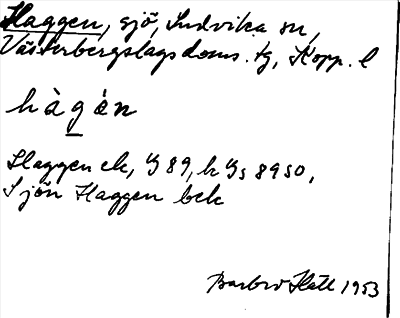 Haggen, sjö, Ludvika sn,
Västerbergslags doms. tg, Kopp. l
hàgán
Haggen ek, G 89, h Gs 8950,
Sjön Haggen bek
Barbro Häll 1953